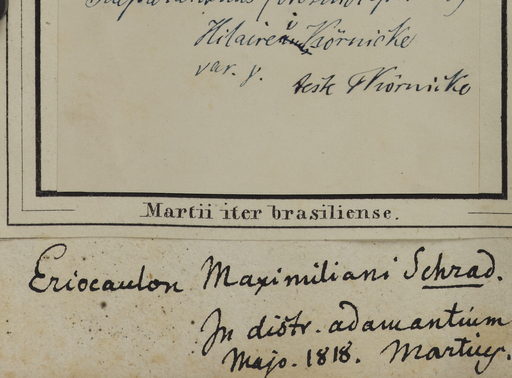 Hilairei Körnicke
var. γ.
teste FKörnicke
Martii iter brasiliense.
Eriocaulon Maximiliani Schrad.
In distr. adamantium
Majo. 1818. Martius.